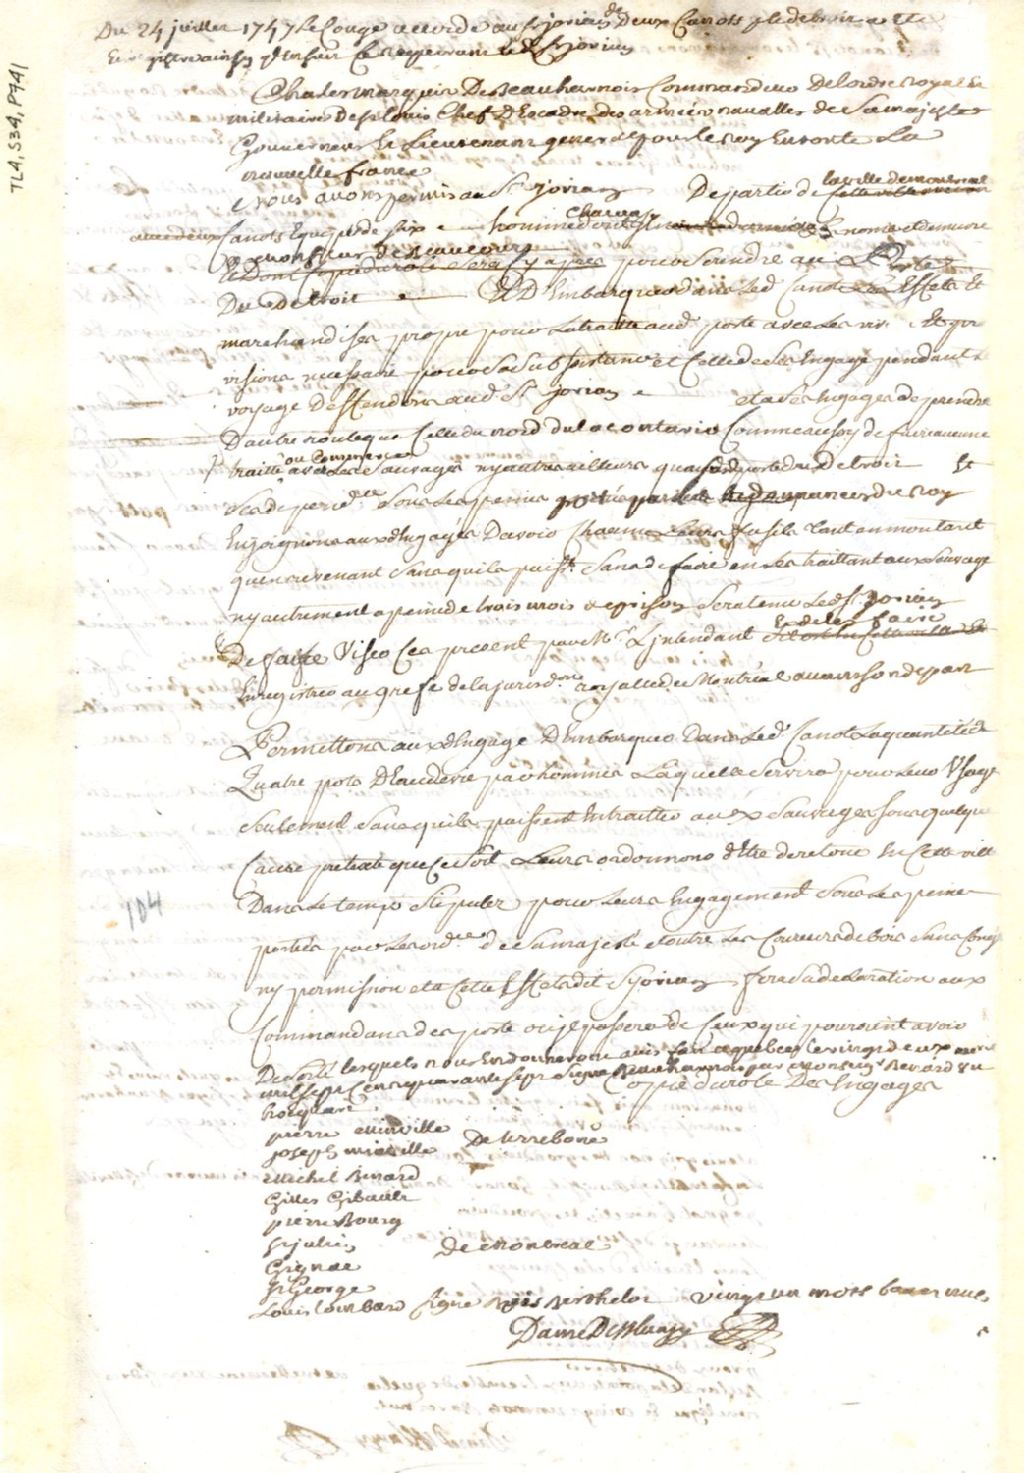 Du 24 juillet 1747 Le Congé accordé au Sr jorian de Deux Canots p le detroit a été
Enregistré ainsy qʼEnsuit Ce requerant led Sr jorian
Charles marquis De Beauharnois Commandeur de lordre royal Et
militaire De St louis Chef D'Escadre des armées navalles de Sa majesté
Gouverneur Et Lieutenant general pour le roy En toute La
nouvelle france
Nous avons permis au Sr jorian De partir de la ville de montreal
avec deux Canots Equipés de six hommes chacun
monsieur de Beaucours pour se rendre au Poste
Du Detroit Et D'Embarquer dans led Canots Les Effets Et
marchandises propre pour la traitte aud poste avec Les vivres Et pro
visions necessaire pour sa subsistance et Celle de ses Engagé pendant le
voyage Deffendons aud Sr jorian et a ses Engages de prendre
Dautre route que Celle du nord du lac ontario Comme aussy de faire aucune
traitte ou Commerce avec Les Sauvages ny autres ailleurs quaud poste du Detroit Et
Ses dependces Sous Les peines portés par les ordonnances du roy
Enjoignons auxd Engagés D'avoir Chacun Leurs fusils tant en montant
quen revenant Sans quils puissent Sans defaire en Les traittant aux Sauvage
ny autrement a peine de trois mois de prison Sera tenu Led Sr Jorian
De faire Viser Ces present par Mr L'jntendant Et de les faire
Enregistrer au grefe de la jurisdon royalle de Montréal avant son depart
Permettons auxd Engagé D'Embarquer Dans Led Canot La quantité de
Quatre pots D'Eau de vie par hommes Laquelle Servira pour Leur Usage
Seulement Sans quils puissent En traitter aux Sauvages Sous quelque
Cause pretexte que Ce soit Leurs ordonnons d'Etre de retour En Cette ville
Dans Le temps Stipulez pour Leurs Engagement Sous Les peines
portées par Les ordces de Sa majesté Contre Les Coureurs de bois Sans Congé
ny permission et a Cette Effet led Sr jorian fera Sa declaration aux
Commandans des poste ou jl passera de Ceux qui pouroient avoir
Deserté lesquels nous En donneront avis fait a quebec le vingt deux
mil sept Cens quarante sept Signé Beauharnois par Monseigr Benard Vu
hocquart Copie du role Des Engagés
pierre Mirville
joseph mirville De terrebone
Michel Benard
Gilles Gibault
pierre Bourg
St julien de Montreal
Gignac
St George
Louis Lombard Signé Bois Berthelot vingt un mots barrés nuls
Danré DeBlanzy
104
TL4, S34, P741